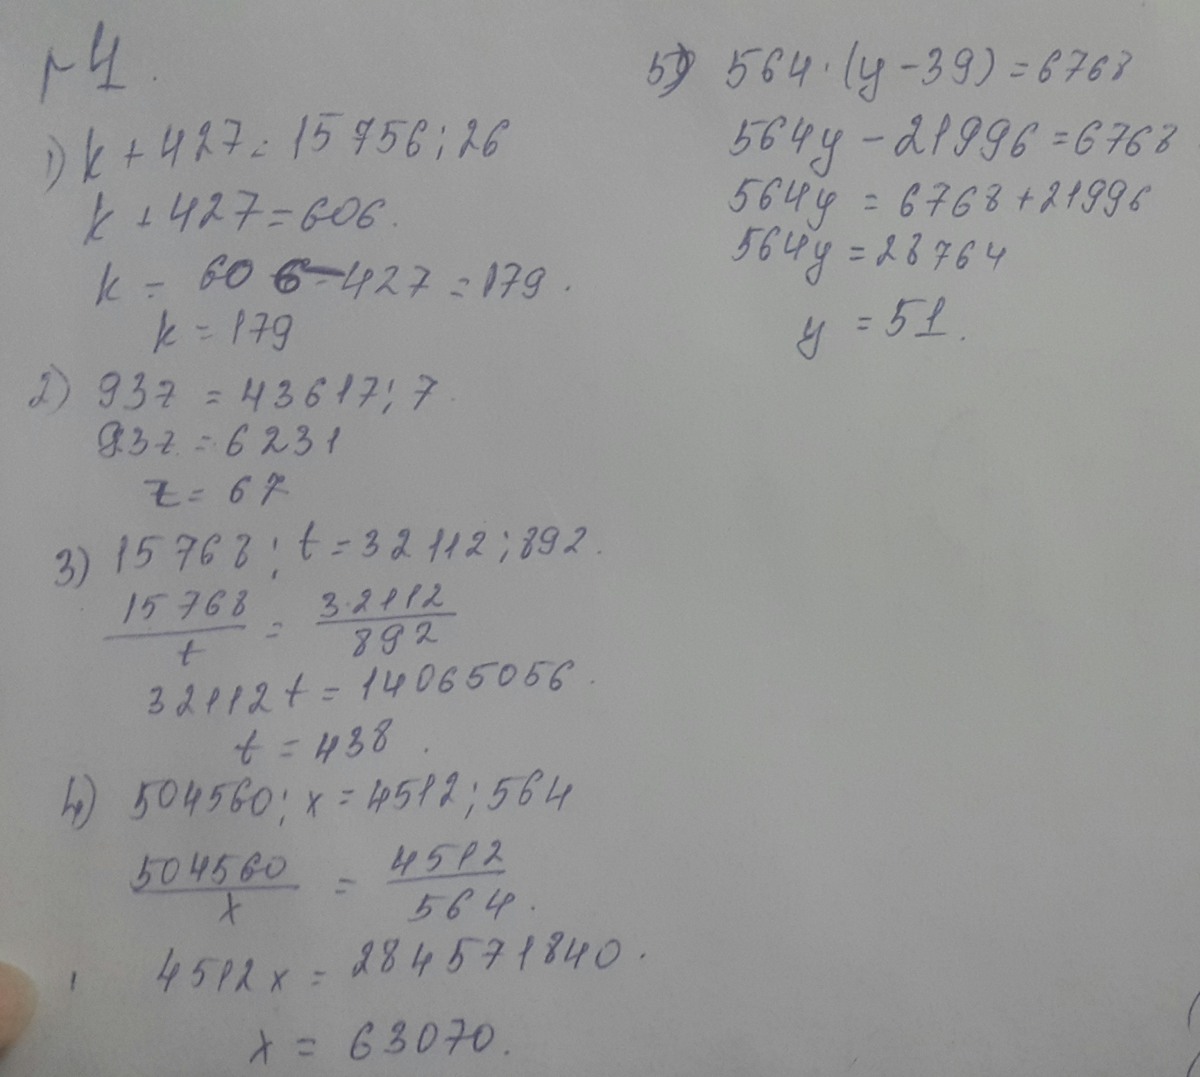 №4.
1) k + 427 = 15 756 : 26
k + 427 = 606.
k = 606 - 427 = 179.
k = 179
2) 93z = 43617 : 7.
93z = 6231
z = 67
3) 15768 : t = 32112 : 892.
15768/t = 32112/892
32112t = 14065056.
t = 438.
4) 504560 : x = 4512 : 564
504560/x = 4512/564.
4512x = 284571840.
x = 63070.
5) 564 · (y - 39) = 6768
564y - 21996 = 6768
564y = 6768 + 21996
564y = 28764
y = 51.